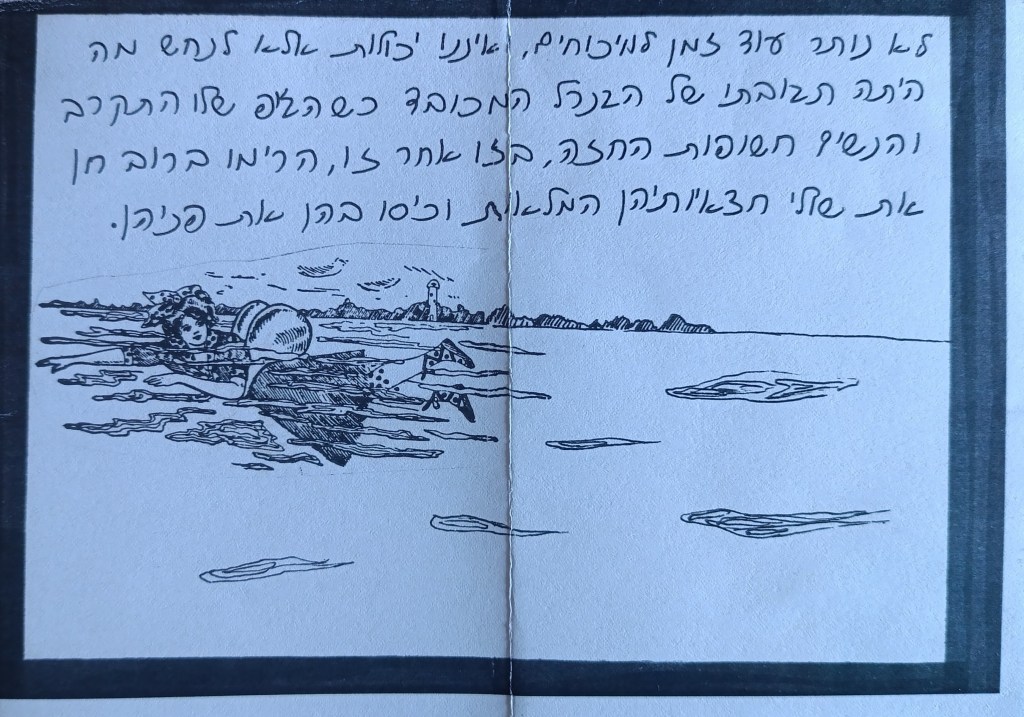 לא נותר עוד זמן לויכוחים, ואיננו יכולות אלא לנחש מה
היתה תגובתו של הגנרל המכובד כשהג'יפ שלו התקרב
והנשים חשופות החזה, בזו אחר זו, הרימו ברוב חן
את שולי חצאיותיהן המלאות וכיסו בהן את פניהן.